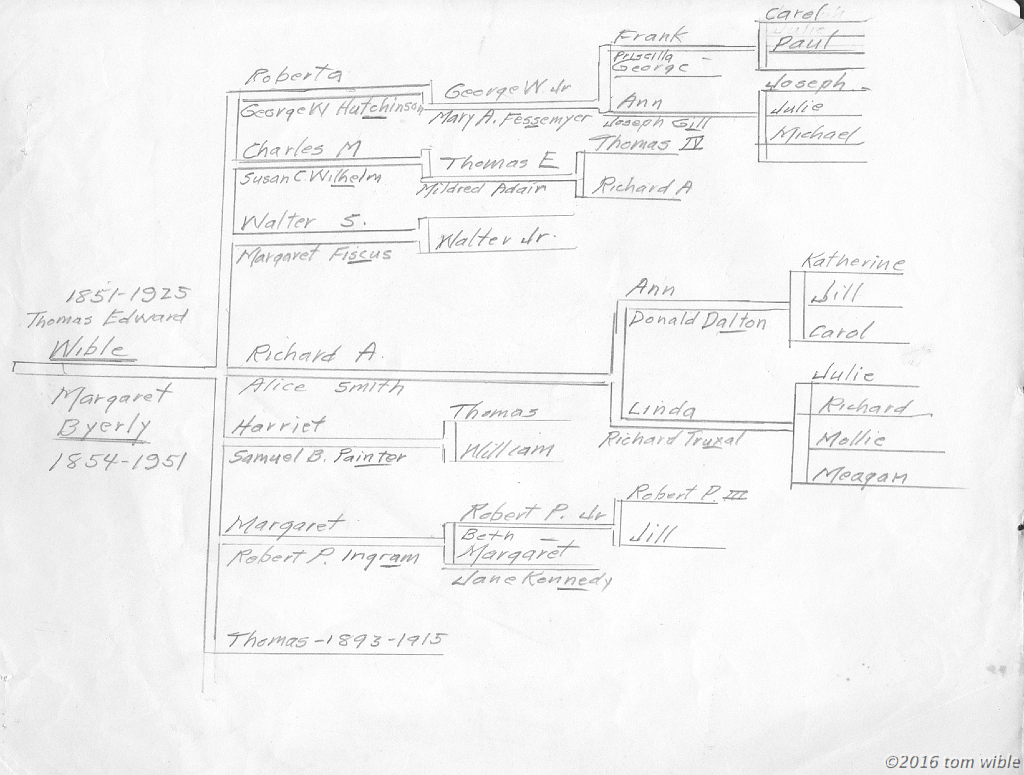 Carol
Paul
Frank
Priscilla
George -
Joseph
Julie
Michael
Ann
Joseph Gill
Roberta
George W Hutchinson
George W Jr
Mary A. Fessemyer
Charles M
Susan C. Wilhelm
Thomas E
Mildred Adair
Thomas IV
Richard A
Walter S.
Margaret Fiscus
Walter Jr.
1851-1925
Thomas Edward
Wible
Margaret
Byerly
1854-1951
Richard A.
Alice Smith
Ann
Donald Dalton
Katherine
Jill
Carol
Linda
Richard Truxal
Julie
Richard
Mollie
Meagan
Harriet
Samuel B. Painter
Thomas
William
Margaret
Robert P. Ingram
Robert P. Jr
Beth -
Margaret
Jane Kennedy
Robert P. III
Jill
Thomas-1893-1915
©2016 tom wible